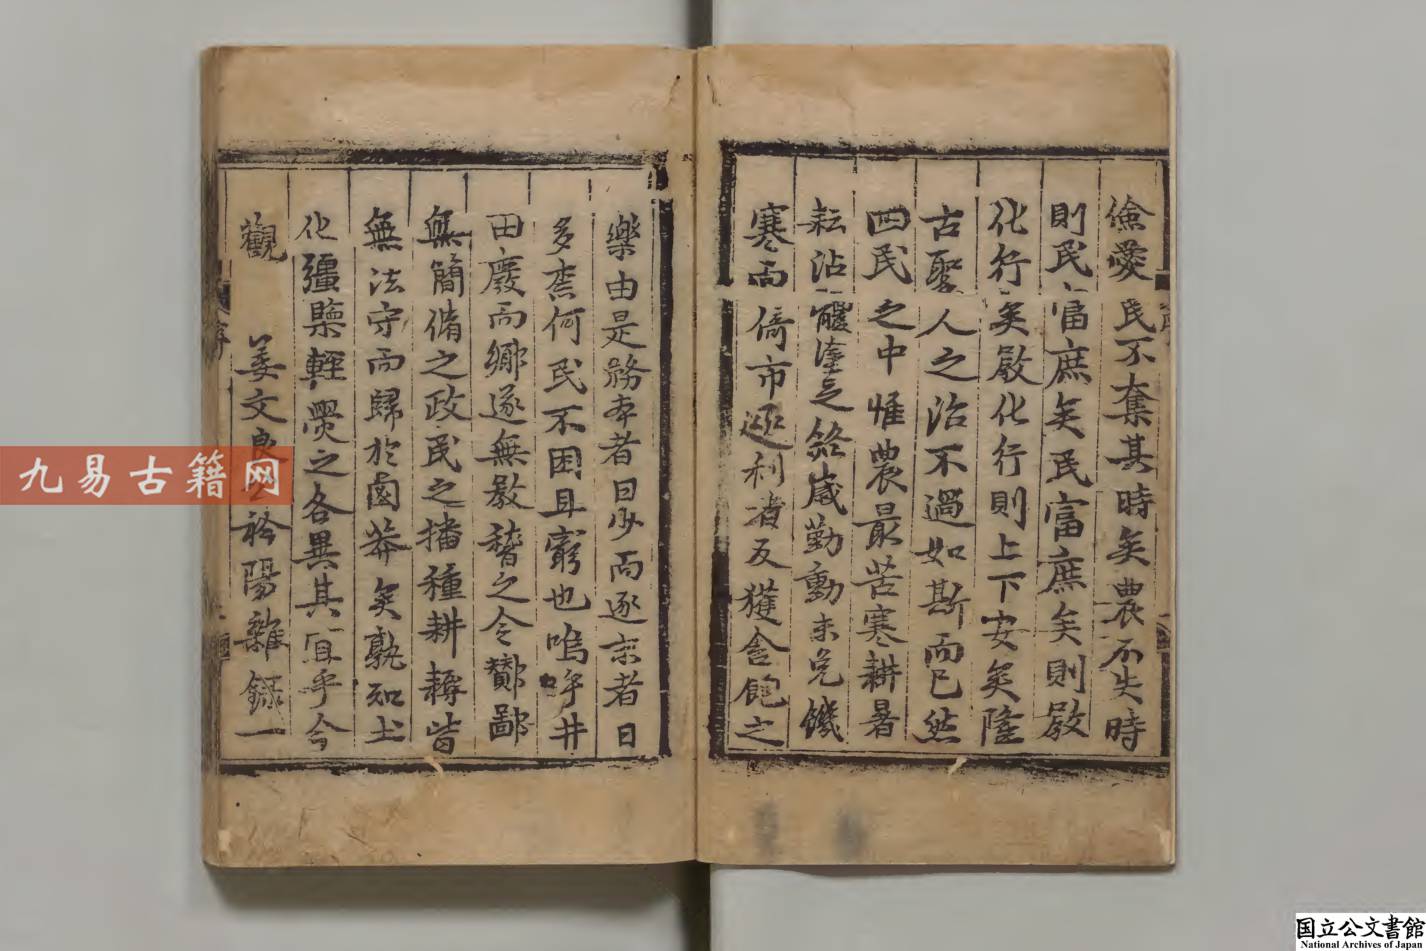 儉愛民不奪其時矣農不失時
則民富庶矣民富庶矣則教
化行矣教化行則上下安矣隆
古聖人之治不過如斯而已然
四民之中惟農最苦寒耕暑
耘沾體塗足終歲勤動未免饑
寒而倚市逐利者反獲含飽之
樂由是務本者日少而逐末者日
多柰何民不困且窮也嗚乎井
田廢而鄉遂無教稽之令酇鄙
無簡脩之政民之播種耕耨皆
無法守而歸於鹵莽矣孰知土
化彊㯺輕爂之各異其宜乎今
觀 姜文良公衿陽雜錄一
九易古籍网
国立公文書館
National Archives of Japan